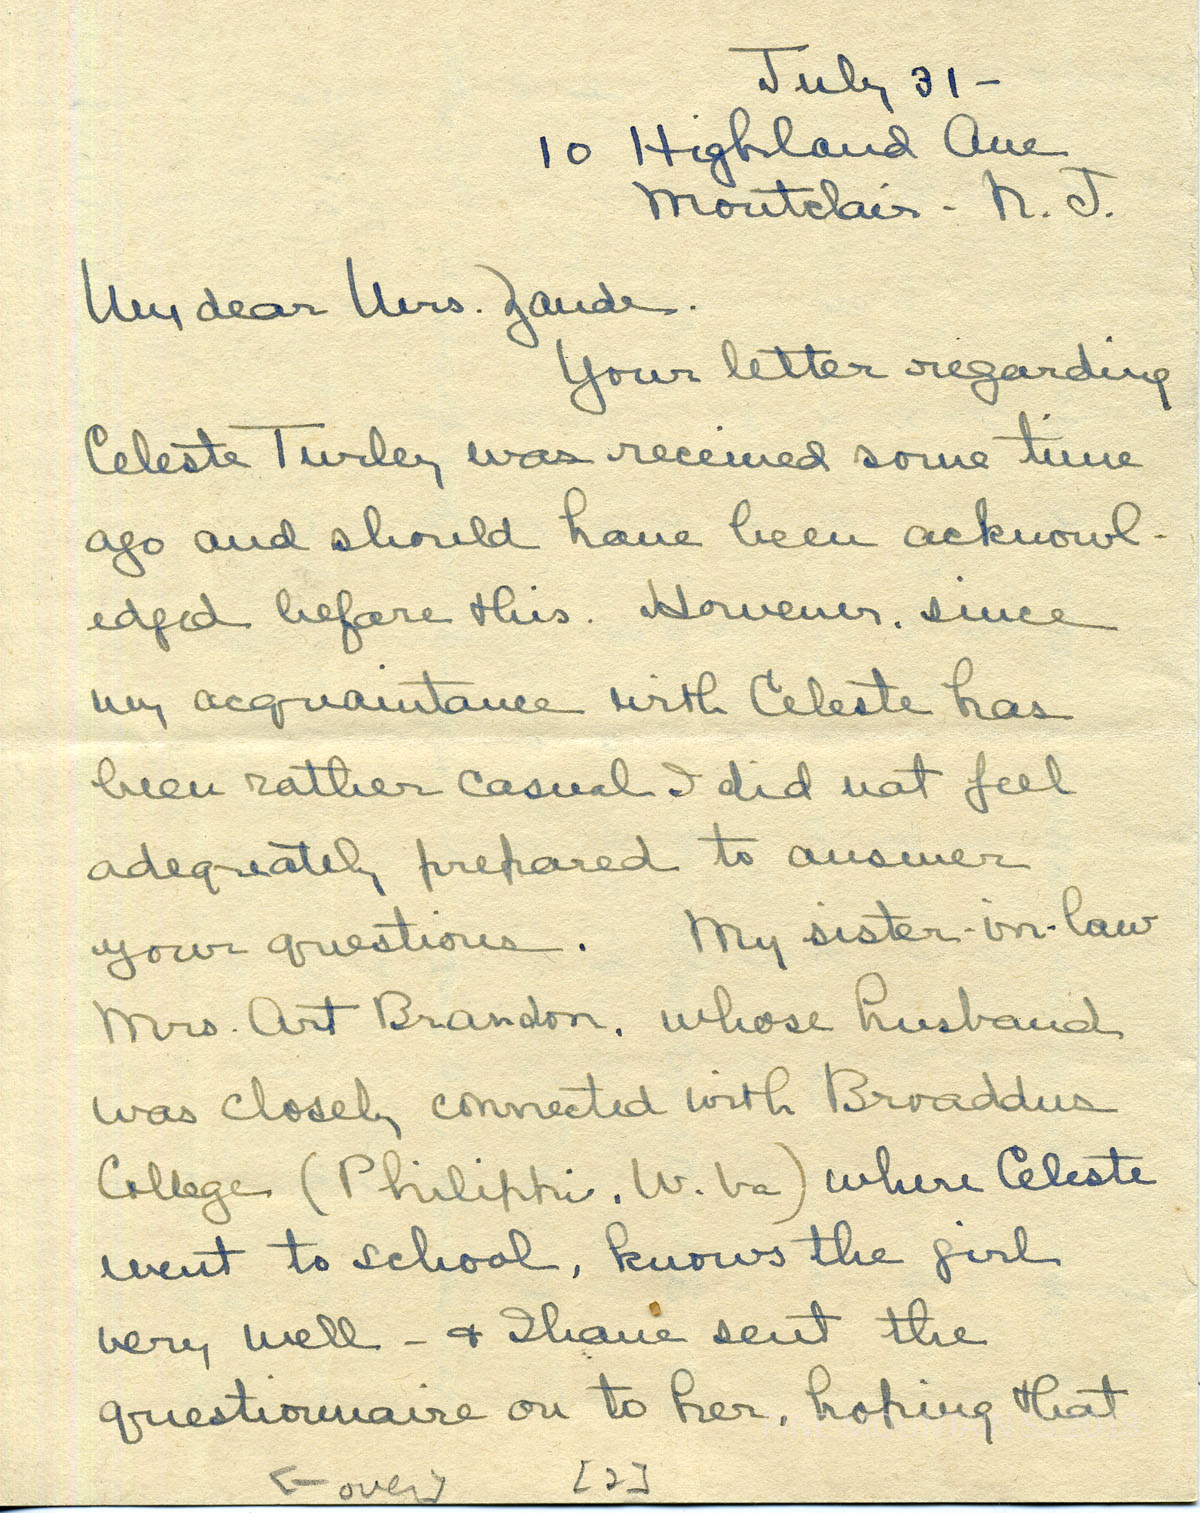 July 31 -
10 Highland Ave
Montclair - N. J.
My dear Mrs. Zande.
Your letter regarding
Celeste Turley was received some time
ago and should have been acknowl-
edged before this. However, since
my acquaintance with Celeste has
been rather casual I did not feel
adequately prepared to answer
your questions. My sister-in-law
Mrs. Art Brandon, whose husband
was closely connected with Broaddus
College (Philippi, W. Va) where Celeste
went to school, knows the girl
very well - & I have sent the
questionnaire on to her, hoping that
<- over> [2]